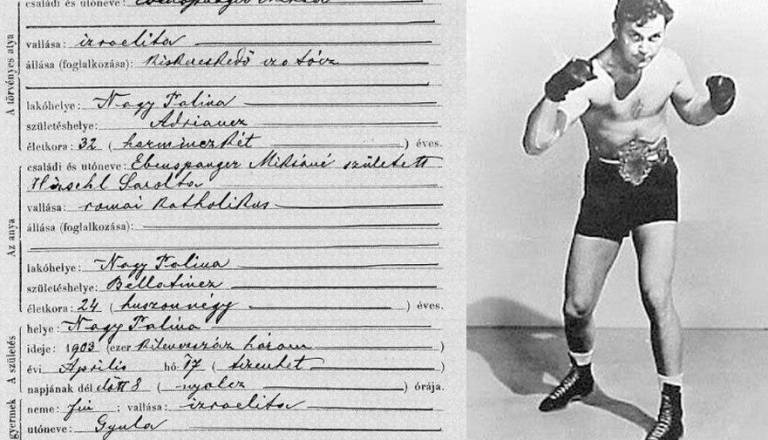 A törvényes atya
családi és utóneve:
vallása: izraelita
állása (foglalkozása): kiskereskedő
lakóhelye: Nagy Falina
születéshelye: Adrianez
életkora: 32 (harminczkét) éves.
Az anya
családi és utóneve: Ebenspanger Miksáné született
Hirschl Sarolta
vallása: romai katholikus
állása (foglalkozása):
lakóhelye: Nagy Falina
születéshelye: Bellatincz
életkora: 24 (huszonnégy) éves.
A születés
helye: Nagy Falina
ideje: 1903 (ezer kilenczszáz három)
évi Április hó 17 (tizenhet)
napjának dél előtt 8 (nyolcz) órája.
gyermek
neme: fiu; vallása: izraelita
utóneve: Gyula